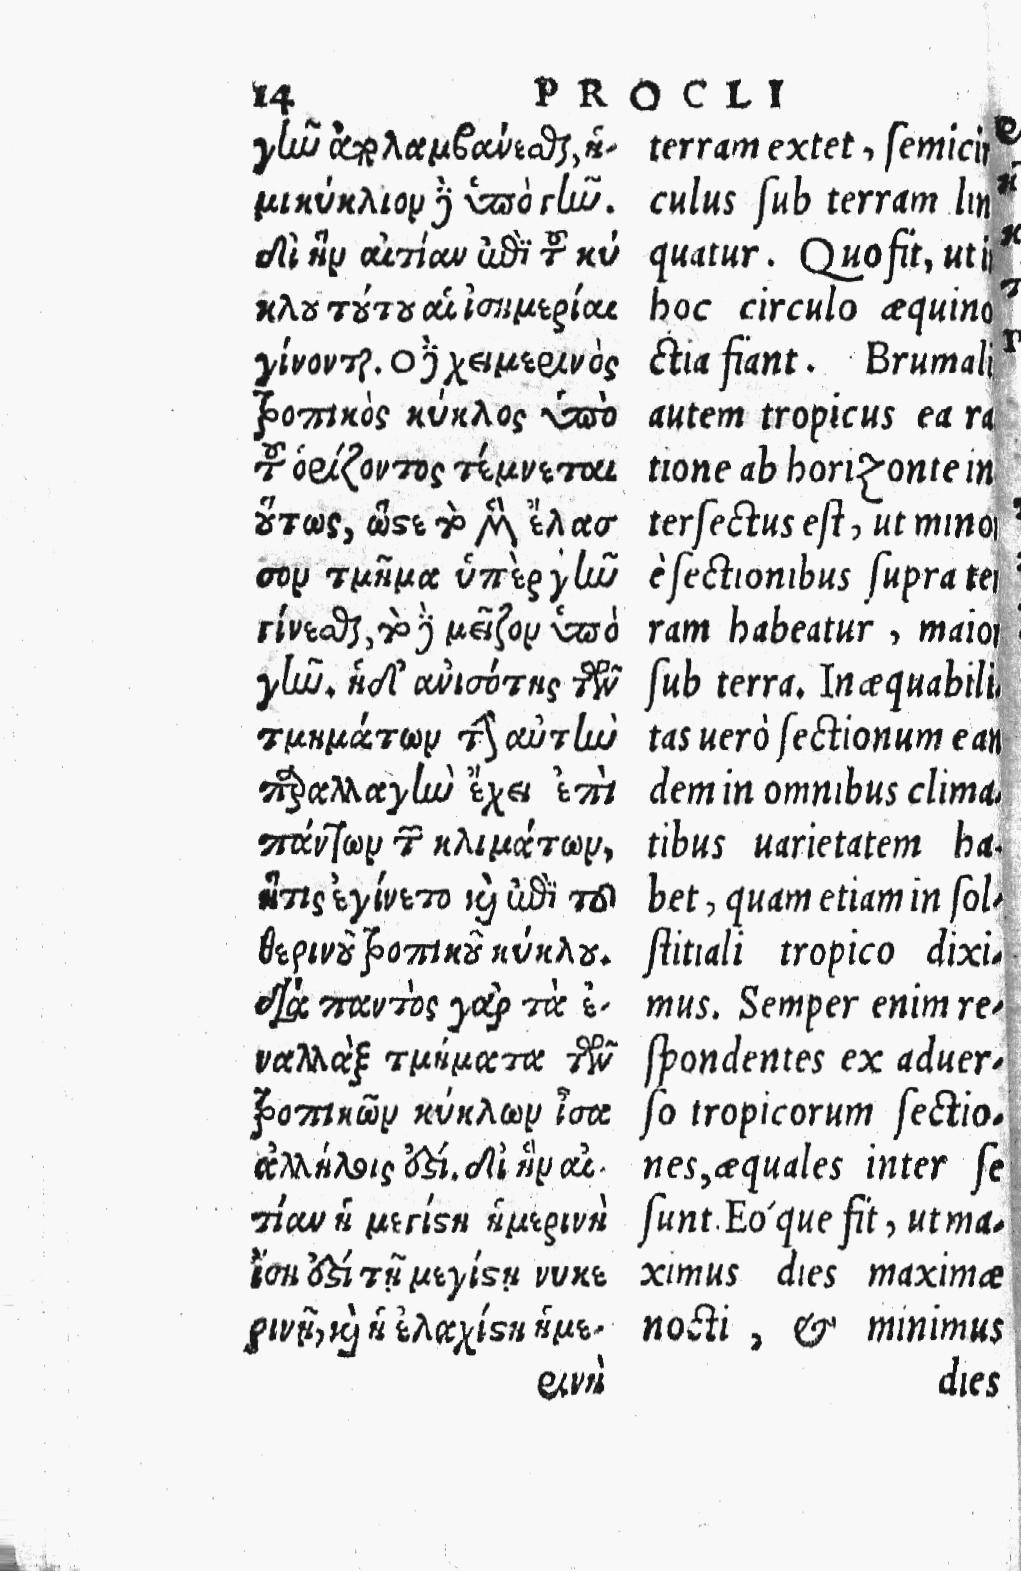 14 PROCLI
γῆν ἀπολαμβάνεσθαι, ἡ-
μικύκλιον δὲ ὑπὸ γῆν.
δι᾽ ἣν αἰτίαν ἐπὶ τοῦ κύ
κλου τούτου αἱ ἰσημερίαι
γίνονται. Ο δὲ χειμερινὸς
τροπικὸς κύκλος ὑπὸ
τοῦ ὁρίζοντος τέμνεται
οὕτως, ὥστε τὸ μὲν ἔλασ
σον τμῆμα ὑπὲρ γῆν
γίνεσθαι, τὸ δὲ μεῖζον ὑπὸ
γῆν. ἡ δὲ ἀνισότης τῶν
τμημάτων τὴν αὐτὴν
παραλλαγὴν ἔχει ἐπὶ
πάντων τῶν κλιμάτων,
ἥτις ἐγίνετο καὶ ἐπὶ τοῦ
θερινοῦ τροπικοῦ κύκλου.
διὰ παντὸς γὰρ τὰ ἐ-
ναλλὰξ τμήματα τῶν
τροπικῶν κύκλων ἴσα
ἀλλήλοις ἐστί. δι᾽ ἣν αἰ-
τίαν ἡ μεγίστη ἡμερινὴ
ἴση ἐστί τῇ μεγίστῃ νυκτε
ρινῇ, καὶ ἡ ἐλαχίστη ἡμε-
ρινὴ
terram extet, semicir
culus sub terram lin
quatur. Quo fit, ut i
hoc circulo æquino
ctia fiant. Brumali
autem tropicus ea ra
tione ab horizonte in
tersectus est, ut minor
è sectionibus supra ter
ram habeatur, maior
sub terra. Inæquabili-
tas uerò sectionum ean
dem in omnibus clima-
tibus uarietatem ha-
bet, quam etiam in sol-
stitiali tropico dixi-
mus. Semper enim re-
spondentes ex aduer-
so tropicorum sectio-
nes, æquales inter se
sunt. Eo´que fit, ut ma-
ximus dies maximæ
nocti, & minimus
dies